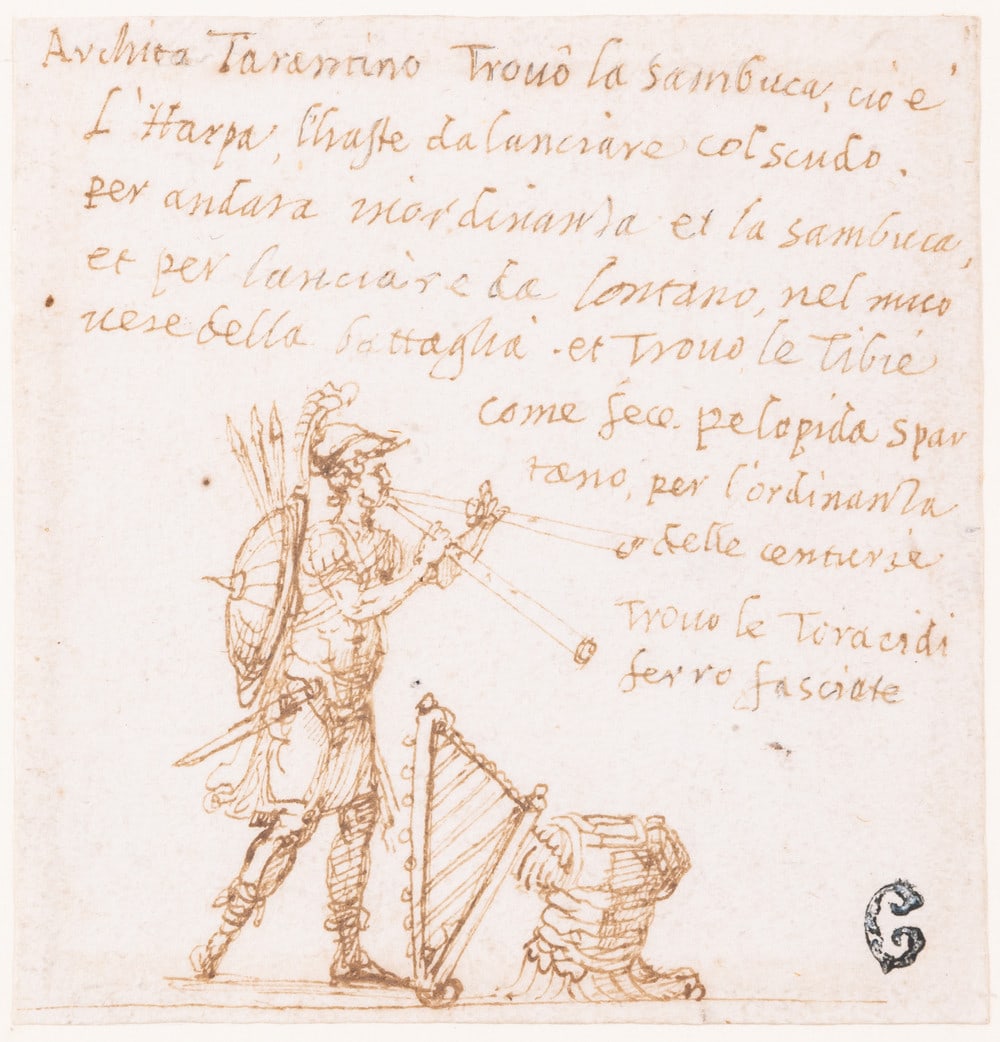 Archita Tarantino Trovô la sambuca, cio è
L'Harpa, l'haste da lanciare col scudo.
per andara inordinanza et la sambuca,
et per lanciare da lontano, nel muo
vere della battaglia. et Trovo le Tibie
come fece. pelopida spar
tano, per l'ordinanza
delle centurie
Trovo le Toraci di
ferro fasciate
G